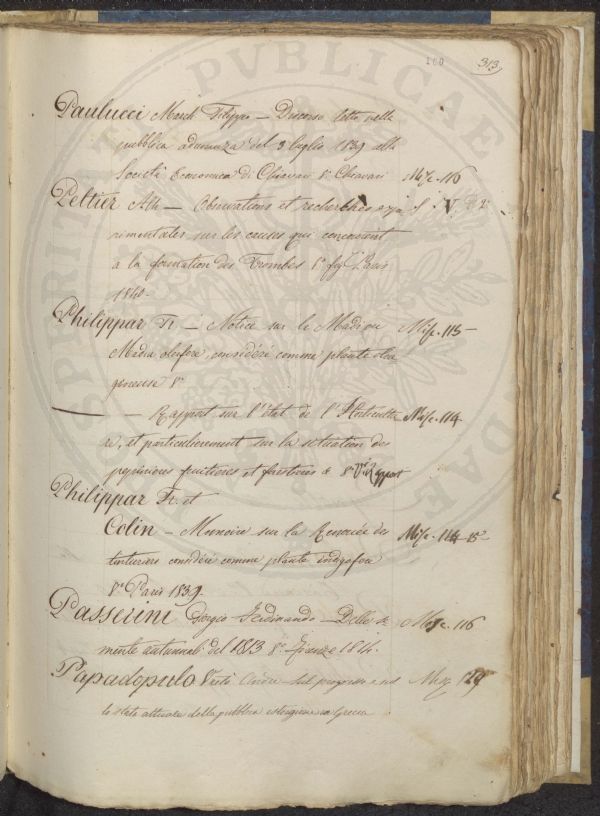 160 313
Paulucci March. Filippo — Discorso letto nella
pubblica adunanza del 3 luglio 1839 alla
Società Economica di Chiavari 8° Chiavari Misc. 116
Peltier Ath — Observations et recherches expé V.
rimentales sur les causes qui concourent
à la formation des Trombes 8° fig. Paris
1840.
Philippar Fr. — Notice sur le Madi ou Misc. 115
Madia oleifere, considéré comme plante olea
gineuse 8°
— Rapport sur l'état de l'Horticultu Misc. 114
re, et particulierement sur la situation des
pepinieres fruitieres et forestieres & 8° V. Rapport
Philippar Fr. et
Colin — Memoire sur la Renouée des Misc. 114
tinturiers considéré comme plante indigofere
8° Paris 1839.
Passerini Giorgio Ferdinando — Delle se Misc. 116
mente autunnali del 1813 8° Firenze 1814.
Papadopulo Vretò Andre sul progresso e sul Misc.
lo stato attuale della pubblica istruzione in Grecia